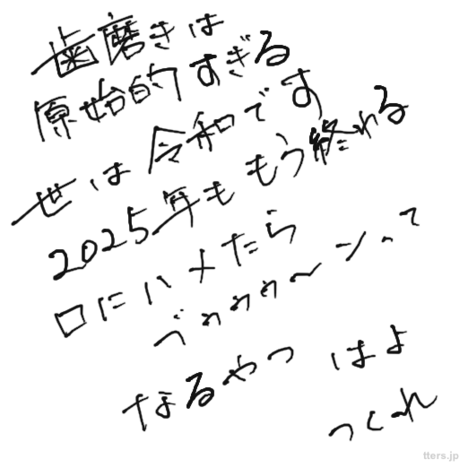 歯磨きは
原始的すぎる
世は令和です
2025年ももう終わる
口にハメたら
ブゥゥゥ〜ンって
なるやつ はよ
つくれ
tters.jp